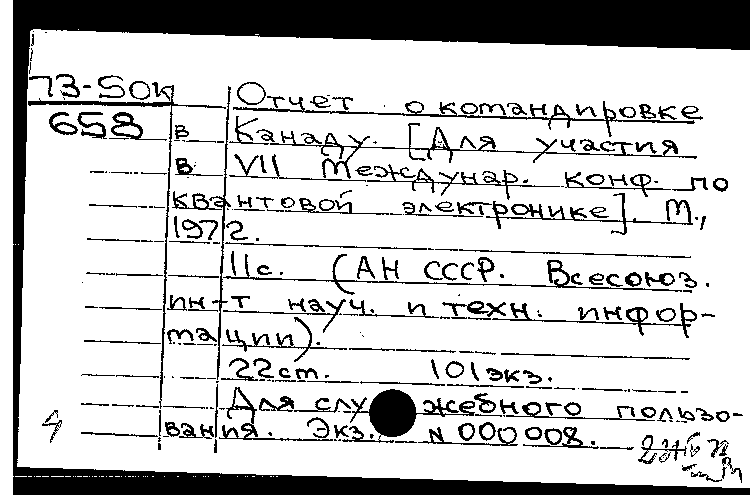 73-5ок
658
Отчет о командировке
в Канаду. [Для участия
в VII Междунар. конф. по
квантовой электронике]. М.,
1972.
11с. (АН СССР. Всесоюз.
ин-т науч. и техн. инфор-
мации).
22см. 101экз.
Для служебного пользо-
вания. Экз. N 000008.